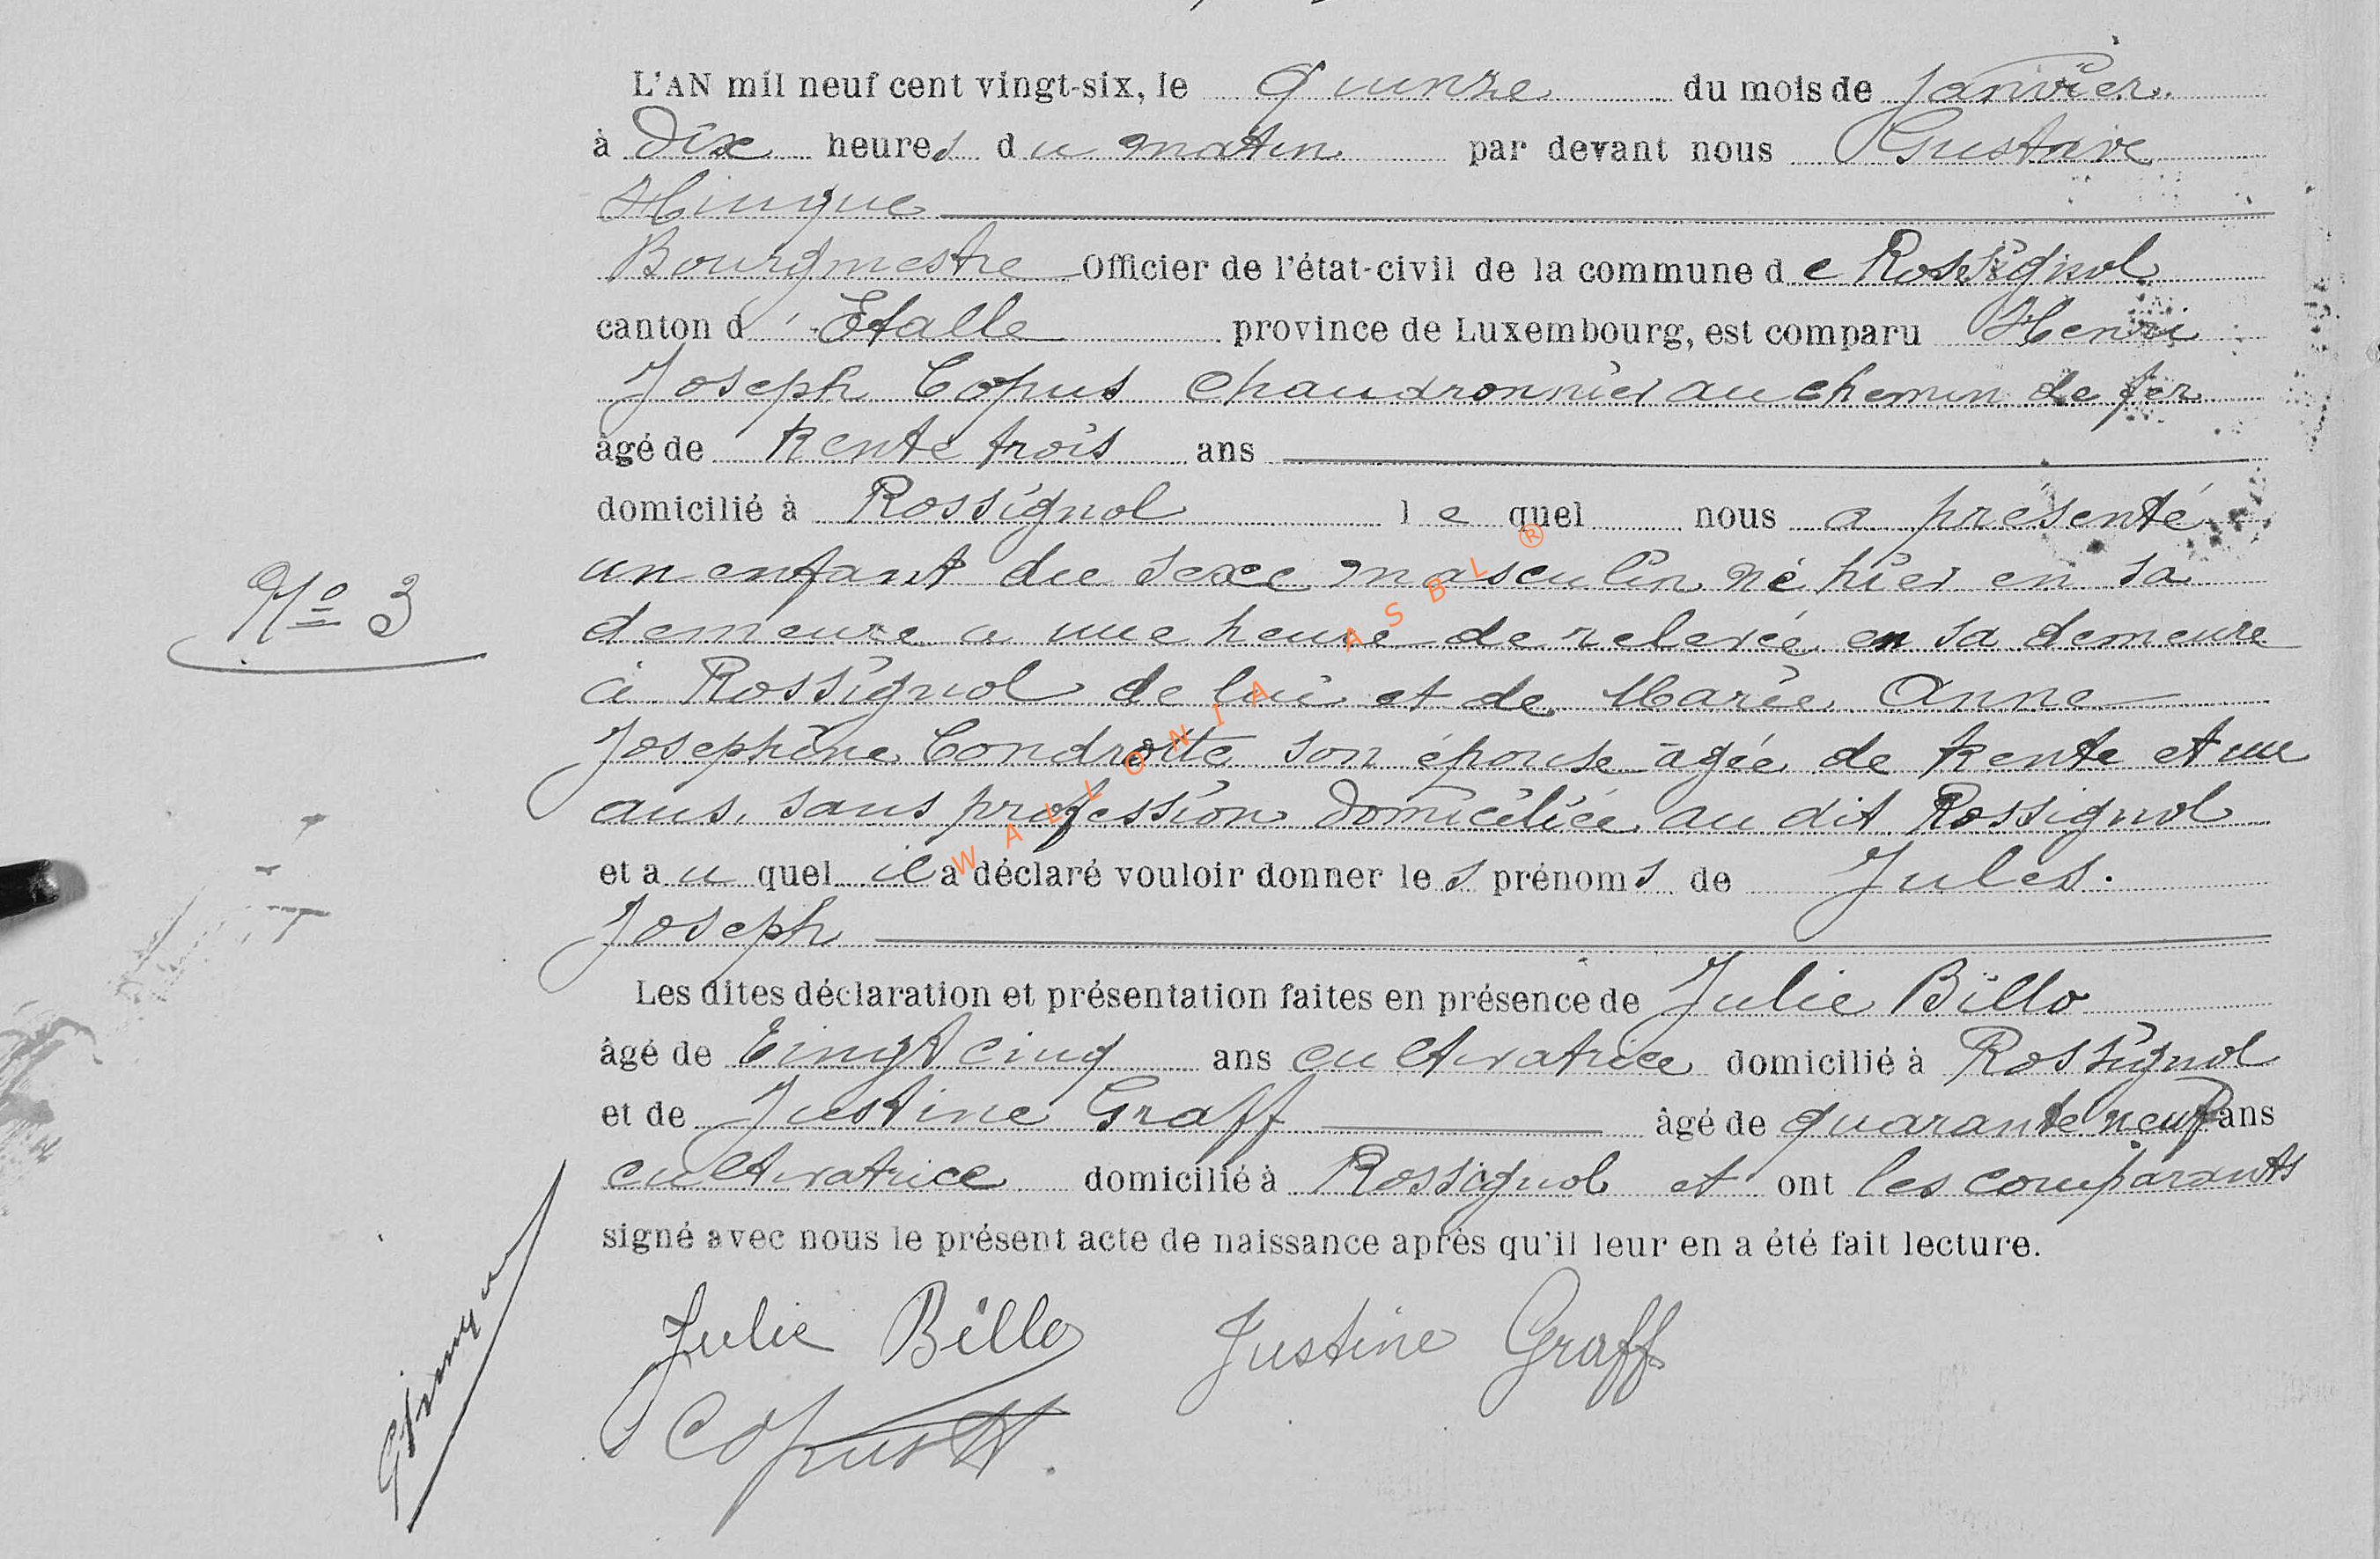 L'AN mil neuf cent vingt-six, le quinze du mois de Janvier
à Dix heures du matin par devant nous Gustave
Hinque
Bourgmestre Officier de l'état-civil de la commune de Rossignol
canton d'Etalle province de Luxembourg, est comparu Henri
Joseph Copus Chaudronnier au chemin de fer
âgé de trente trois ans
domicilié à Rossignol lequel nous a présenté
un enfant du sexe masculin né hier en sa
demeure a une heure de relevée en sa demeure
à Rossignol de lui et de Marie Anne
Josephine Condrotte son épouse agée de trente et un
ans, sans profession Domiciliée au dit Rossignol
N° 3
et auquel il a déclaré vouloir donner les prénoms de Jules.
Joseph
Les dites déclaration et présentation faites en présence de Julie Billo
âgé de Vingt cinq ans cultivatrice domicilié à Rossignol
et de Justine Graff âgé de quarante neuf ans
cultivatrice domicilié à Rossignol et ont les comparants
signé avec nous le présent acte de naissance après qu'il leur en a été fait lecture.
Julie Billo Justine Graff
Copus H.
WALLONIA ASBL ®